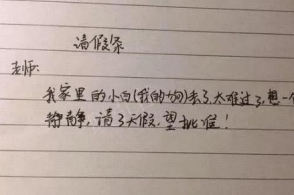 请假条
老师:
我家里的小白(我的狗)去了,太难过了,想一个
静静,请3天假,望批准!